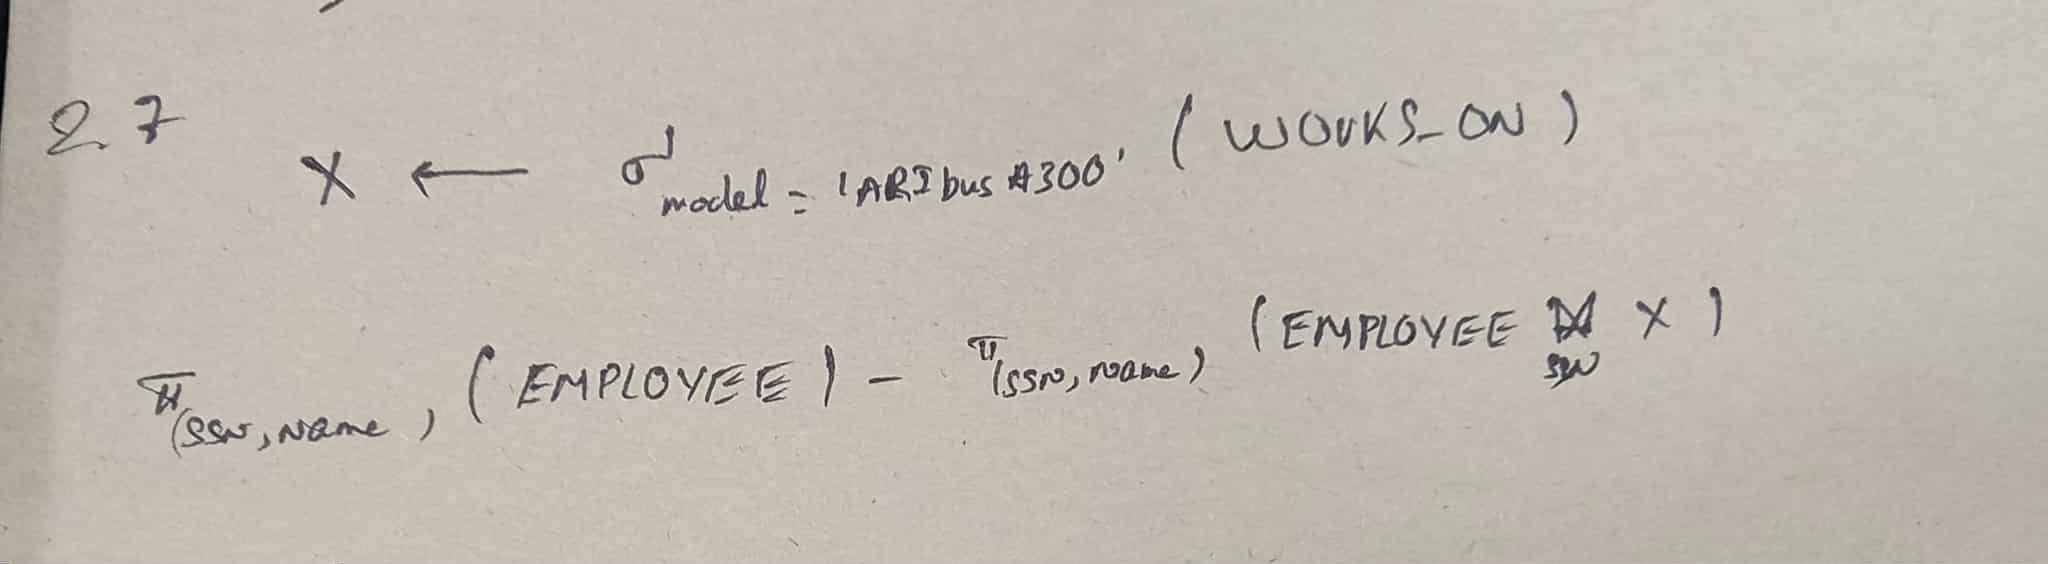 2.7
X ← σ model = 'ARIbus A300' (WORKS_ON)
π (SSN, Name) (EMPLOYEE) - π (SSN, Name) (EMPLOYEE ⋈ SSN X)